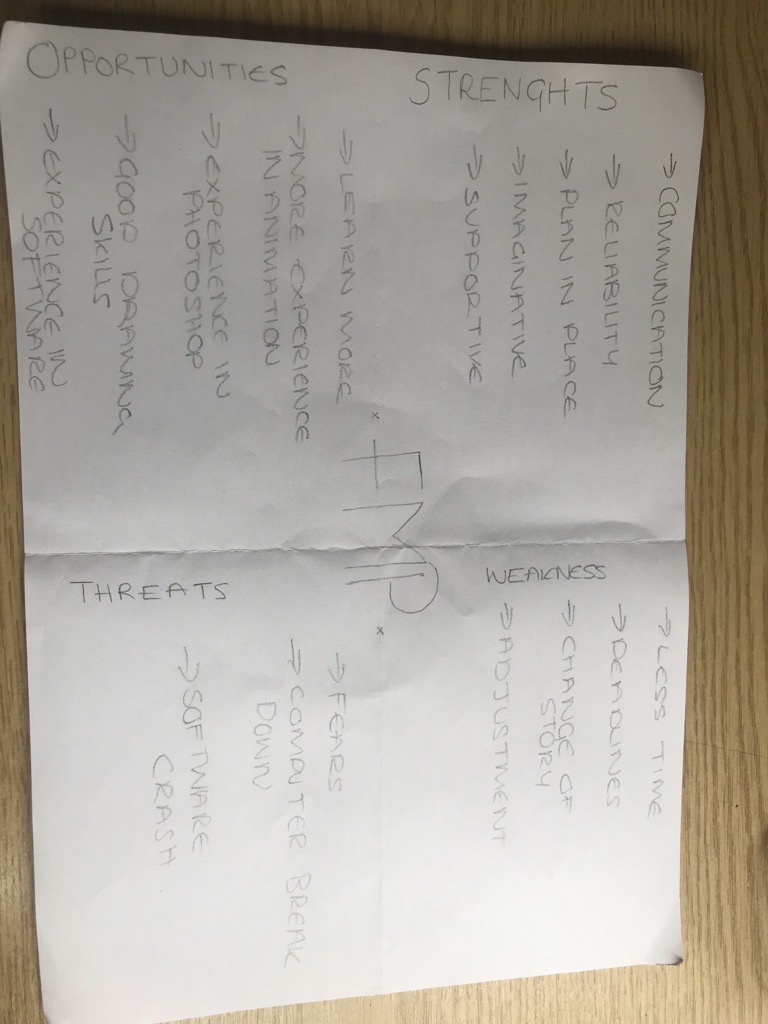 STRENGHTS
→ COMMUNICATION
→ RELIABILITY
→ PLAN IN PLACE
→ IMAGINATIVE
→ SUPPORTIVE
WEAKNESS
→ LESS TIME
→ DEADLINES
→ CHANGE OF
STORY
→ ADJUSTMENT
× FMP ×
OPPORTUNITIES
→ LEARN MORE
→ MORE EXPERIENCE
IN ANIMATION
→ EXPERIENCE IN
PHOTOSHOP
→ GOOD DRAWING
SKILLS
→ EXPERIENCE IN
SOFTWARE
THREATS
→ FEARS
→ COMPUTER BREAK
DOWN
→ SOFTWARE
CRASH